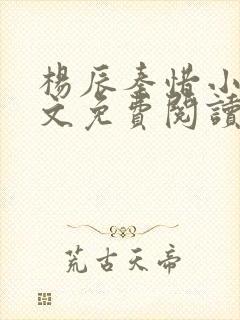 楊辰秦惜小
文免費閱讀
荒古天帝